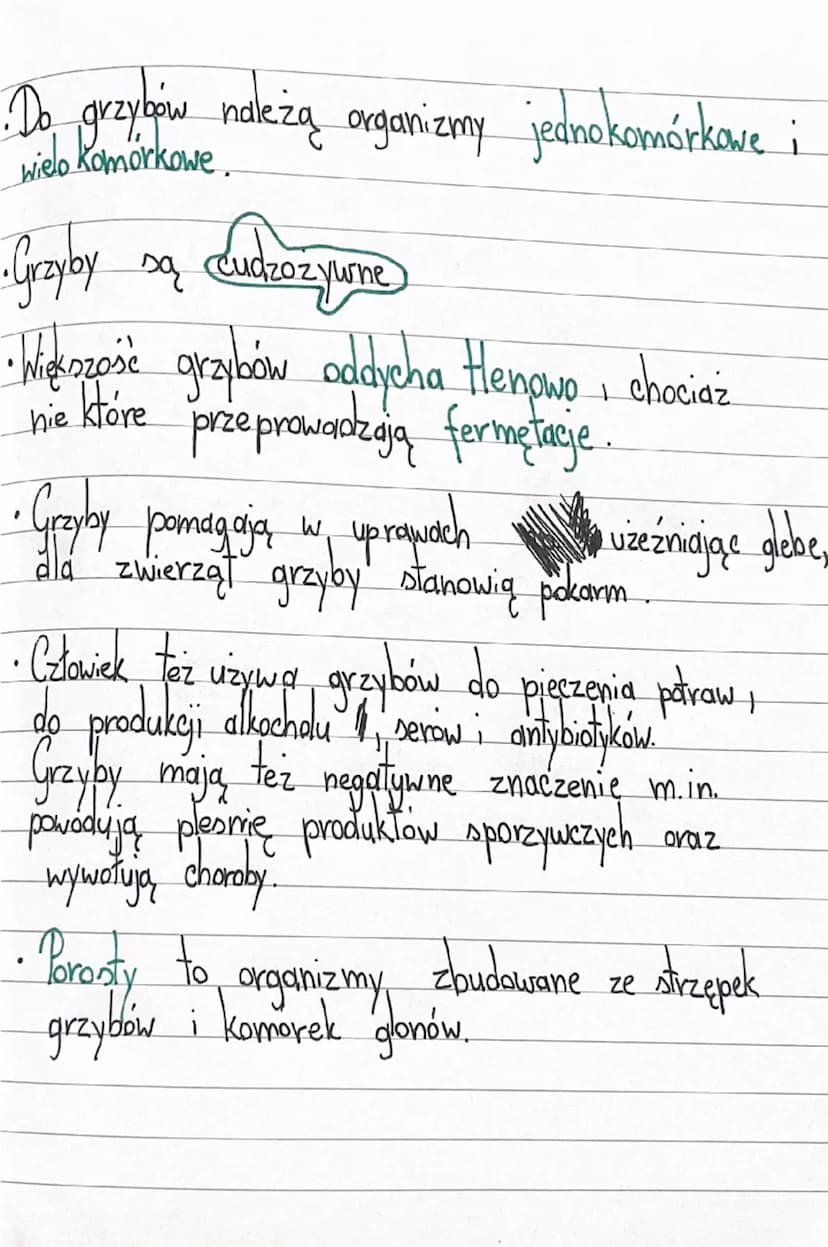 • Do grzybów należą organizmy jednokomórkowe i
wielokomórkowe.
• Grzyby są cudzożywne
• Większość grzybów oddycha tlenowo, chociaż
nie które przeprowadzają fermętacje.
• Grzyby pomagają w uprawach użeźniając glebe,
dla zwierząt grzyby stanowią pokarm.
• Człowiek też używa grzybów do pieczenia potraw,
do produkcji alkocholu, serów i antybiotyków.
Grzyby mają też negatywne znaczenie m.in.
powodują plesnię produktów sporzywczych oraz
wywołują choroby.
• Porosty to organizmy zbudowane ze strzępek
grzybów i komórek glonów.